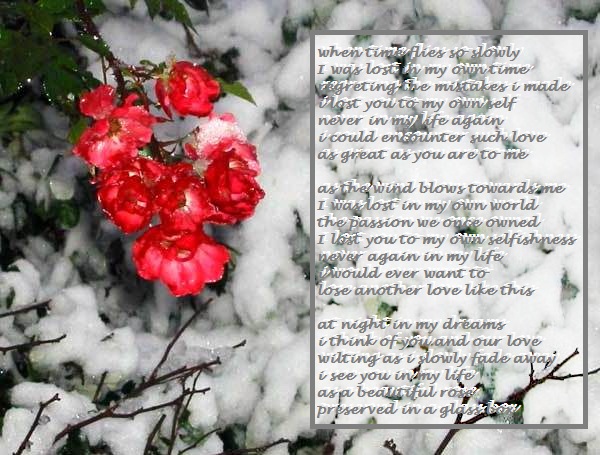 when time flies so slowly
I was lost in my own time
regreting the mistakes i made
i lost you to my own self
never in my life again
i could encounter such love
as great as you are to me

as the wind blows towards me
I was lost in my own world
the passion we once owned
I lost you to my own selfishness
never again in my life
i would ever want to
lose another love like this

at night in my dreams
i think of you and our love
wilting as i slowly fade away
i see you in my life
as a beautiful rose
preserved in a glass box